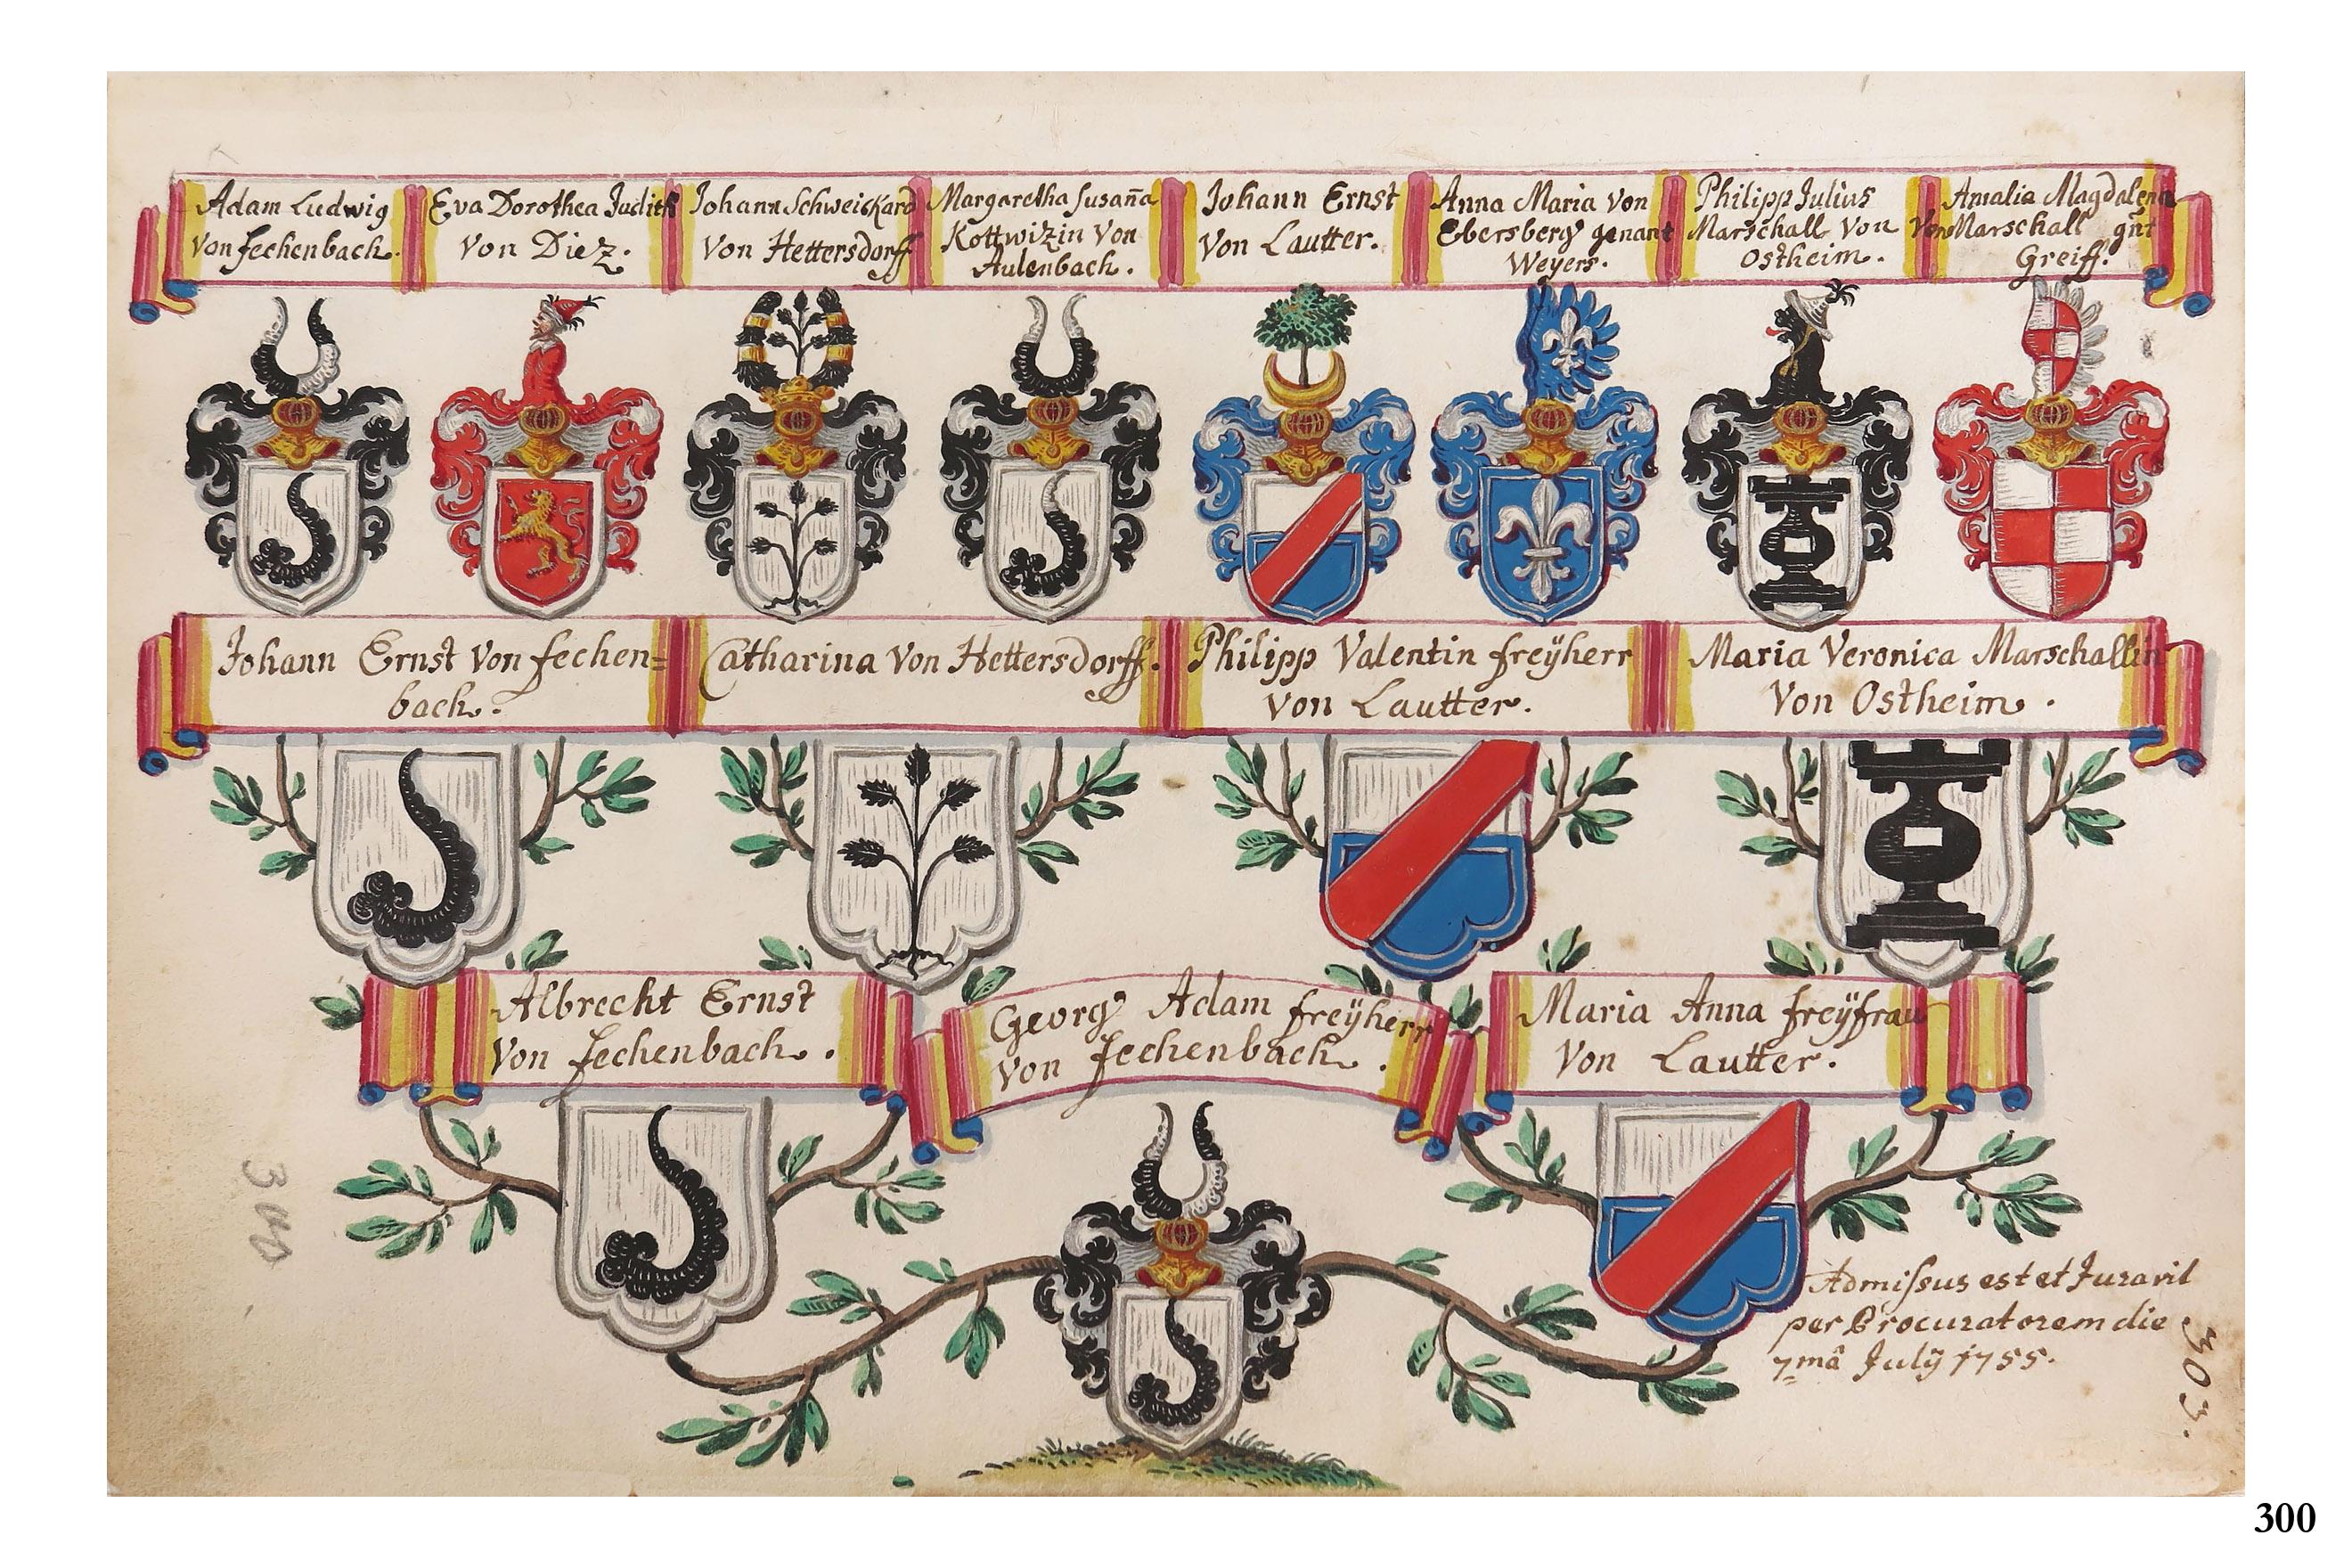 Adam Ludwig
von Fechenbach.
Eva Dorothea Judith
von Diez.
Johann Schweickard
von Hettersdorff
Margaretha Susan̄a
Kottwizin von
Aulenbach.
Johann Ernst
von Lautter.
Anna Maria von
Ebersberg genant
Weyers.
Philipp Julius
Marschall von
Ostheim.
Amalia Magdalena
von Marschall gn̄t
Greiff.
Johann Ernst von Fechen=
bach.
Catharina von Hettersdorff.
Philipp Valentin Freÿherr
von Lautter.
Maria Veronica Marschallin
von Ostheim.
Albrecht Ernst
von Fechenbach.
Georg Adam Freÿherr
von Fechenbach.
Maria Anna Freÿfrau
von Lautter.
Admissus est et Juravit
per Procuratorem die
7mâ Julÿ 1755.
300
303.
300